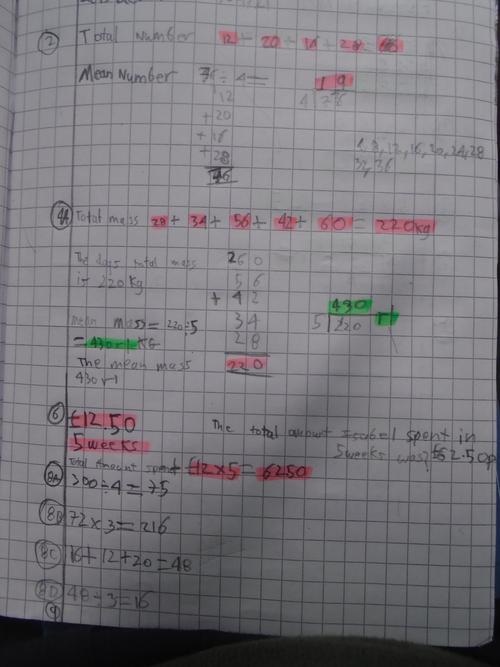 2 Total Number 12 + 20 + 16 + 28 =
Mean Number ÷ 4 =
1 9
12
4
+ 20
+ 16
+ 28
4, 8, 12, 16, 20, 24, 28
32, 36
4A Total mass 28 + 34 + 56 + 42 + 60 = 220kg
The dogs total mass
is 220 kg
60
56
+ 42
34
28
220
mean mass = 220÷5
= 430 r1 KG
430 r1
5 220
The mean mass
430 r1
6 £12.50
5 weeks
The total amount Isabel spent in
5 weeks was £62.50p
Total Amount spent £12 x 5 = 6250
8A 300 ÷ 4 = 75
8B 72 x 3 = 216
8C 16 + 12 + 20 = 48
8D 48 ÷ 3 = 16
9